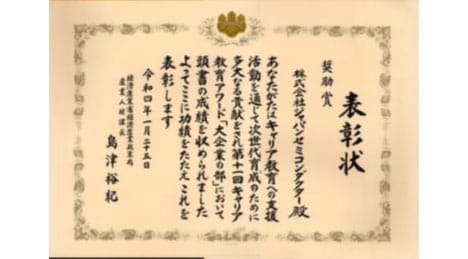 表彰状
奨励賞
株式会社ジャパンセミコンダクター殿
あなたがたはキャリア教育への支援
活動を通じて次世代育成のために
多大なる貢献をされ第十一回キャリア
教育アワード「大企業の部」において
頭書の成績を収められました
よってここに功績をたたえこれを
表彰します
令和四年一月二十五日
経済産業省経済産業政策局
産業人材課長
島津裕紀